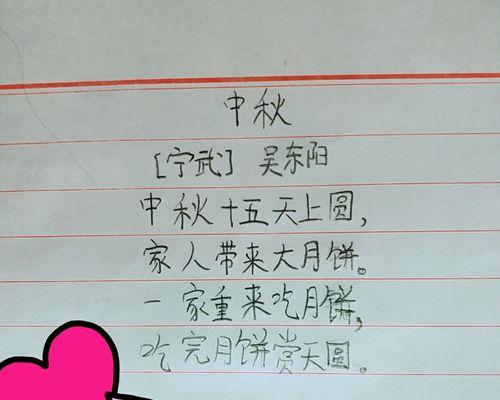 中秋
[宁武] 吴东阳
中秋十五天上圆,
家人带来大月饼。
一家重来吃月饼,
吃完月饼赏天圆。